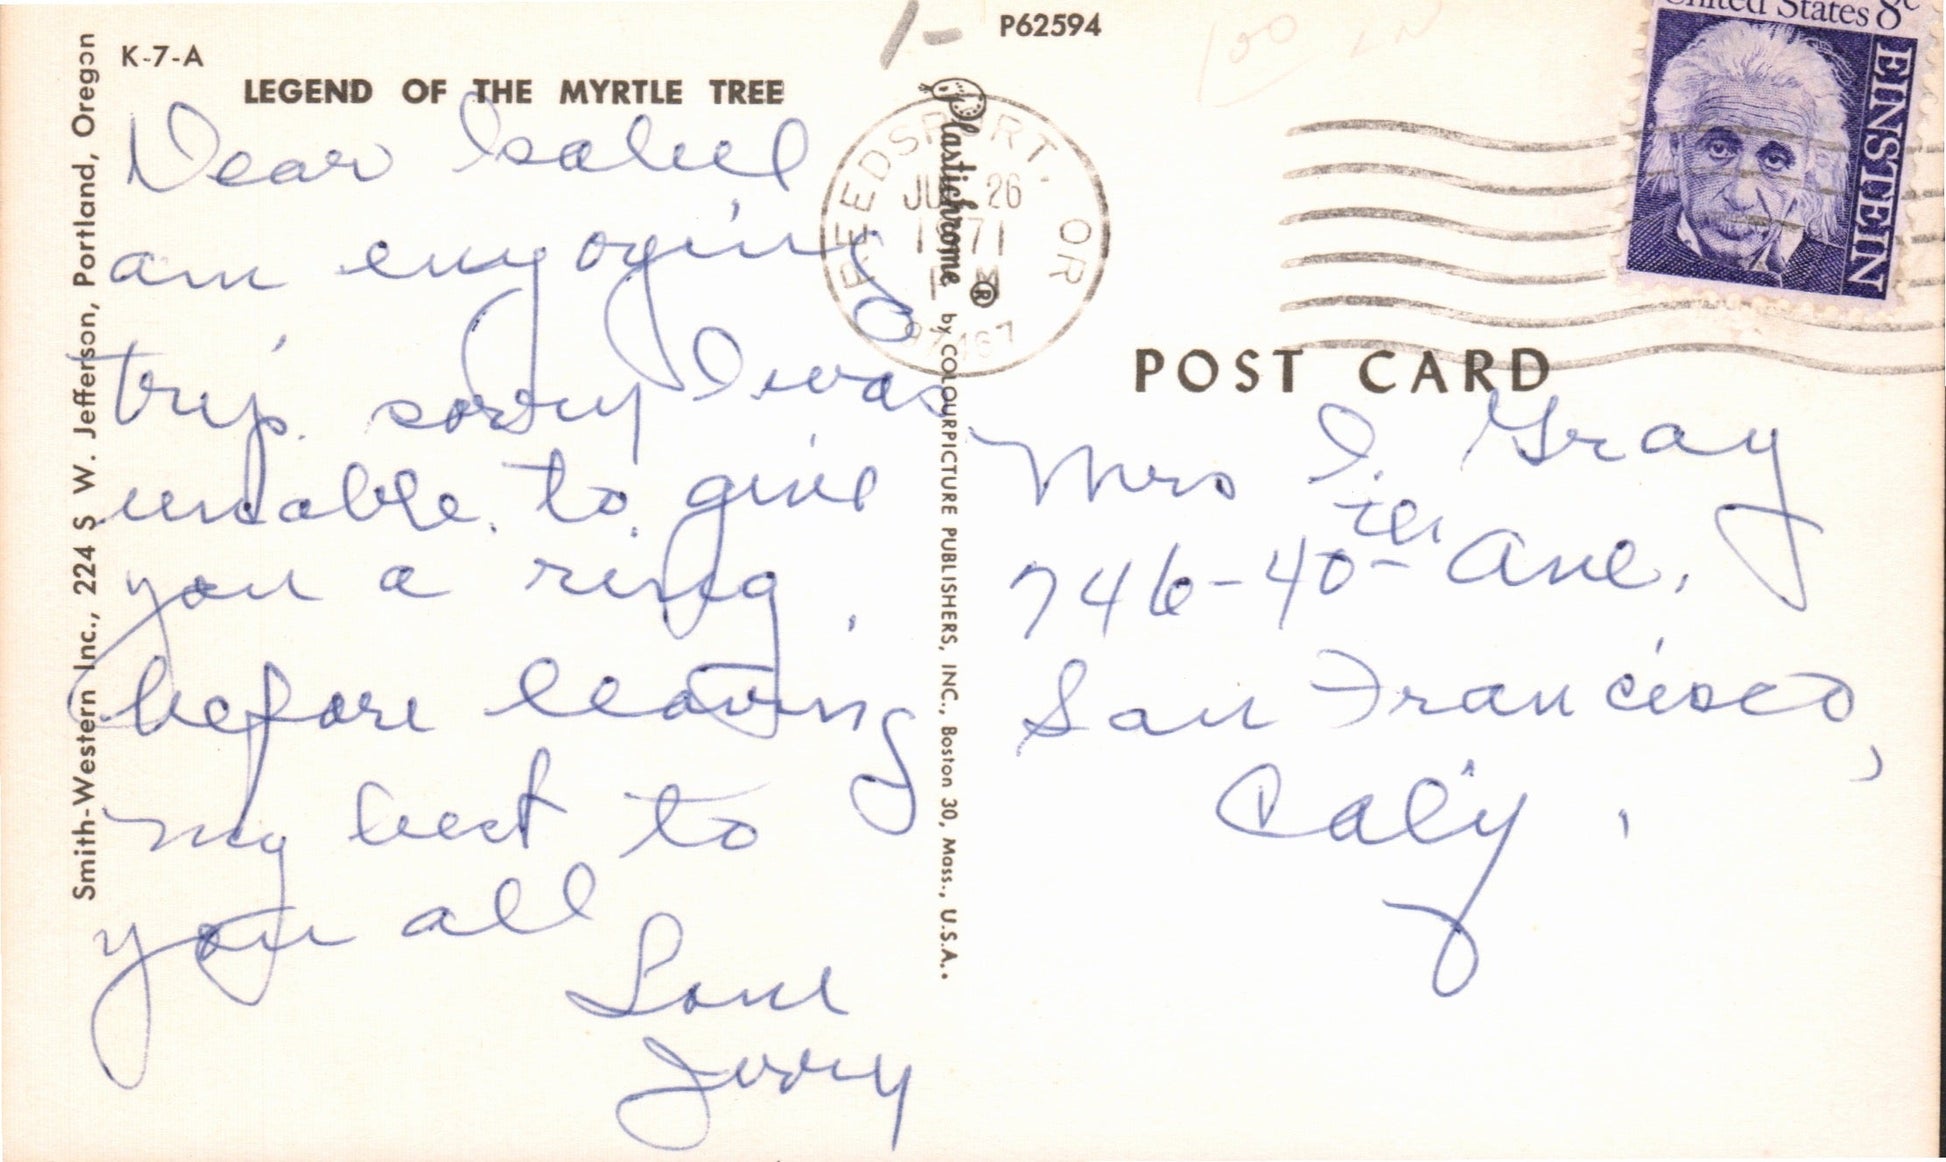 K-7-A
LEGEND OF THE MYRTLE TREE
Dear Isabel
am enyoying
trip. sorry I was
unable to give
you a ring
before leaving
my best to
you all
Love
Jerry
Smith-Western Inc., 224 S W. Jefferson, Portland, Oregon
P62594
Plastichrome ® by COLOURPICTURE PUBLISHERS, INC., Boston 30, Mass., U.S.A.
REEDSPORT, OR
26
1971
PM
97467
United States 8c
EINSTEIN
POST CARD
Mrs I. Gray
746-40th Ave.
San Francisco,
Calif.